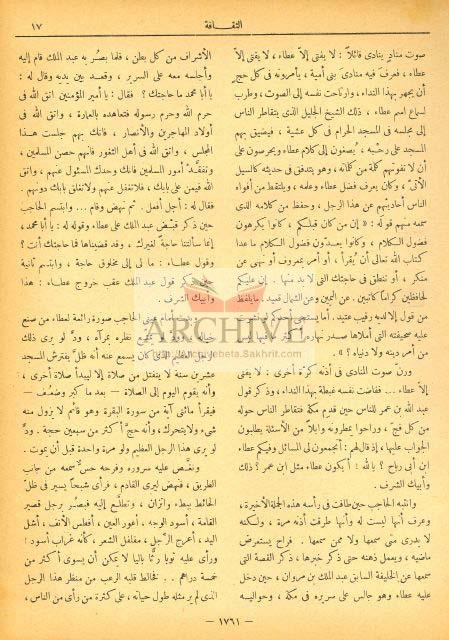 الثقافة
١٧
صوت مناد ينادى قائلاً : لا يفتى إلا عطاء ، لا يفتى إلا
عطاء ، فعرف فيه منادى بنى أمية ، يأمرونه فى كل حج
أن يجهر بهذا النداء ، وارتاحت نفسه إلى الصوت ، وطرب
لسماع اسم عطاء ، ذلك الشيخ الجليل الذى يتقاطر الناس
إلى مجلسه فى المسجد الحرام فى كل عشية ، فيضيق بهم
المسجد على رحبه ، يُصغون إلى كلام عطاء ويحرصون على
أن لا تفوتهم كلمة من كلماته ، وهو يتدفق فى حديثه كالسيل
الآتى ، وكان يعرف فضل عطاء وعلمه ، ويلتقط من أفواه
الناس أحاديثهم عن هذا الرجل ، وحفظ من كلامه الذى
سمعه منهم قوله : « إن من كان قبلكم ، كانوا يكرهون
فضول الكلام ، وكانوا يعدّون فضول الكلام ما عدا
كتاب الله تعالى أن يُقرأ ، أو أمر بمعروف أو نهى عن
منكر ، أو تنطق فى حاجتك التى لا بد منها . إن عليكم
لحافظين كراماً كاتبين . عن اليمين وعن الشمال قعيد . ما يلفظ
من قول إلا لديه رقيب عتيد . أما يستحي أحدكم لو نشرت
عليه صحيفته التى أملاها صدر نهاره
من أمر دينه ولا دنياه ؟ » .
ورنّ صوت المنادى فى أذنه كرة أخرى : لا يفتى
إلا عطاء ... ففاضت نفسه غبطة بهذا النداء ، وذكر قول
عبد الله بن عمر للناس حين قدم مكة فتقاطر الناس حوله
من كل فج ، وراحوا يمطرونه وابلاً من الأسئلة يطلبون
الجواب عليها ، إذ قال لهم : أتجمعون لى المسائل وفيكم عطاء
ابن أبى رباح ؟ بالله : أيكون عطاء مثل ابن عمر ؟ ذلك
وأبيك الشرف .
وانتبه الحاجب حين طافت فى رأسه هذه الجملة الأخيرة ،
وعرف أنها ليست له وأنها طرقت أذنه مرة ، ولكنه
لا يدرى متى سمعها ولا ممن سمعها . فراح يستعرض
ماضيه ، ويعمل ذهنه حتى ذكر خبرها ، ذكر القصة التى
سمعها عن الخليفة السابق عبد الملك بن مروان ، حين دخل
عليه عطاء وهو جالس على سريره فى مكة ، وحواليه
الأشراف من كل بطن ، فلما بصُر به عبد الملك قام إليه
وأجلسه معه على السرير ، وقعد بين يديه وقال له :
يا أبا محمد ما حاجتك ؟ فقال : يا أمير المؤمنين اتق الله فى
حرم الله وحرم رسوله فتعاهده بالعمارة ، واتق الله فى
أولاد المهاجرين والأنصار ، فانك بهم جلست هذا
المجلس ، واتق الله فى أهل الثغور فانهم حصن المسلمين ،
وتفقّد أمور المسلمين فانك وحدك المسئول عنهم ، واتق
الله فيمن على بابك ، فلا تغفل عنهم ولا تغلق بابك دونهم .
فقال له : أجل أفعل . ثم نهض وقام ... وابتسم الحاجب
حين ذكر قبْض عبد الملك على عطاء وقوله له : يا أبا محمد ،
إنما سألتنا حاجة لغيرك ، وقد قضيناها فما حاجتك أنت ؟
وقول عطاء : ما لى إلى مخلوق حاجة ، وابتسم ثانية
حين ذكر قول عبد الملك عقب خروج عطاء : هذا
وأبيك الشرف .
وبدت أمام عينى الحاجب صورة رائعة لعطاء من صنع
خياله
نظره بمرآه ، ودّ لو يرى ذلك
الذى كان يسمع عنه أنه ظل يفترش المسجد
عشرين سنة لا ينفتل من صلاة إلا ليبدأ صلاة أخرى ،
وأنه يقوم اليوم إلى الصلاة — بعد ما كبر وضعُف —
فيقرأ مائتى آية من سورة البقرة وهو قائم لا يزول منه
شىء ولا يتحرك ، وأنه حج أكثر من سبعين حجة . ودّ
لو يرى هذا الرجل العظيم ولو مرة واحدة قبل أن يموت .
ونغّص عليه سروره وفرحه حس سمعه من جانب
الطريق ، فنهض ليرى القادم ، فرأى شبحاً يسير فى ظل
الحائط ببطء واتزان ، وتطلّع إليه فبصُر برجل قصير
القامة ، أسود الوجه ، أعور العين ، أفطس الأنف ، أشل
اليد ، أعرج الرجل ، مفلفل الشعر ، كأنه غراب أسود !
ورأى عليه ثوباً رثّا باليا لا يمكن أن يسوى أكثر من
خمسة دراهم .. تخالط قلبه الرعب من منظر هذا الرجل
الذى لم ير مثله طول حياته ، على كثرة من رأى من الناس ،
ARCHIVE
http://Archivebeta.Sakhrit.com
— ١٧٦١ —